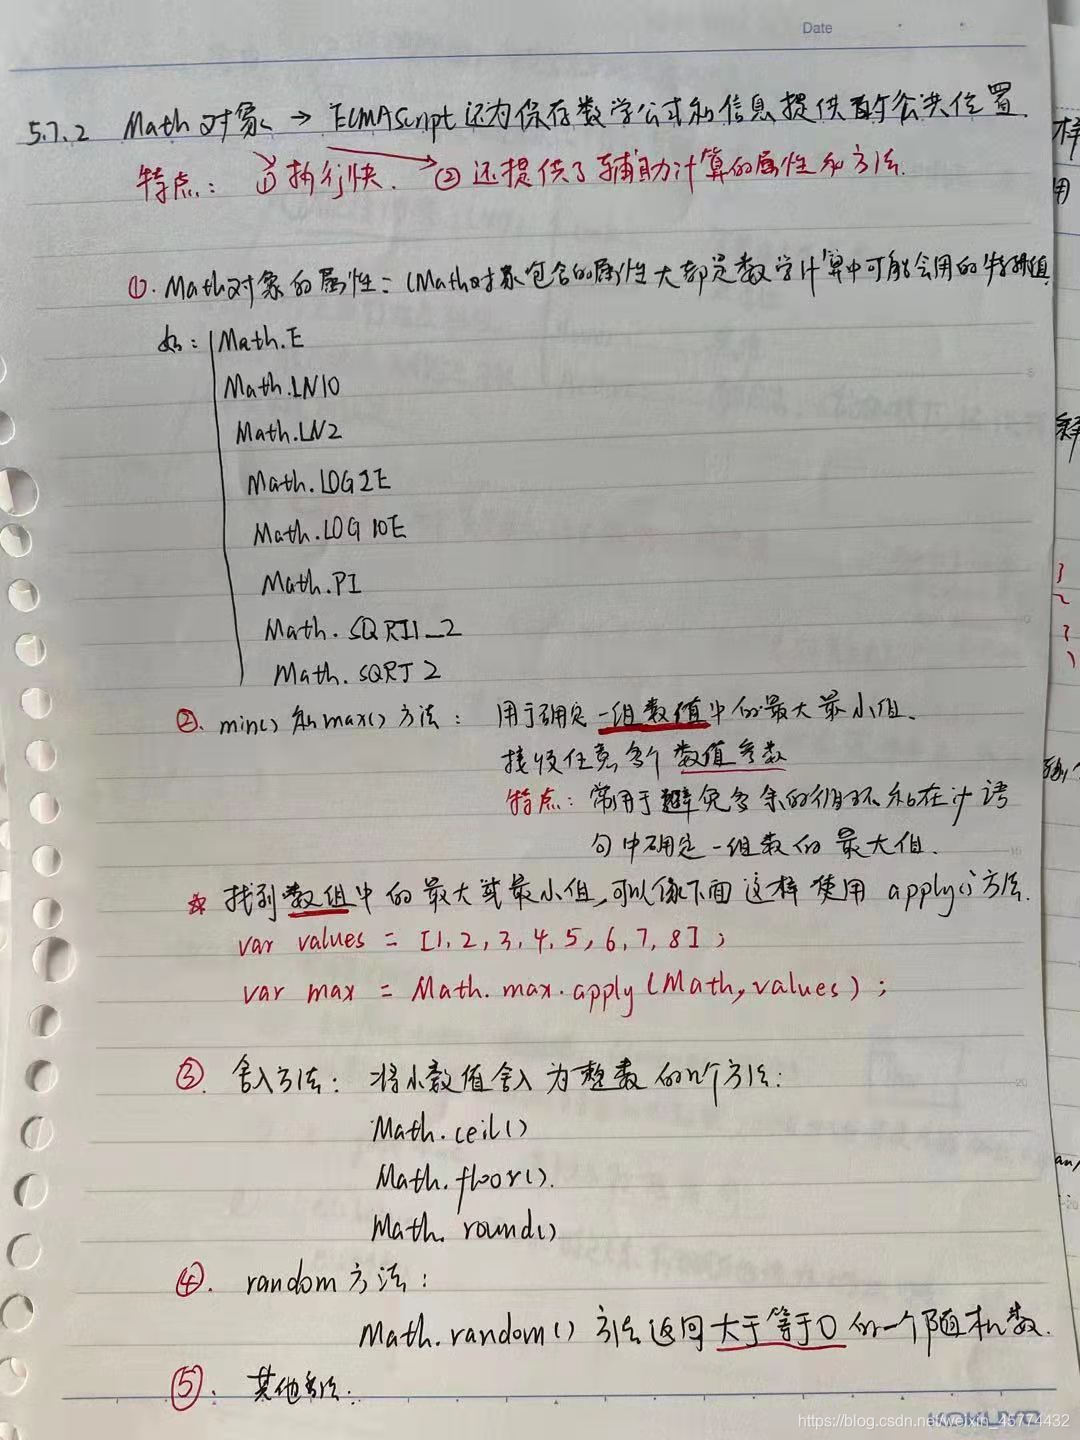 Date
5.7.2 Math对象 → ECMAScript还为保存数学公式和信息提供了公共位置.
特点: ① 执行快. ② 还提供了辅助计算的属性和方法.
①. Math对象的属性: (Math对象包含的属性大都是数学计算中可能会用的特殊值
如: Math.E
Math.LN10
Math.LN2
Math.LOG2E
Math.LOG10E
Math.PI
Math.SQRT1_2
Math.SQRT2
②. min()和max()方法: 用于确定一组数值中的最大最小值.
接收任意多个数值参数
特点: 常用于避免多余的循环和在if语
句中确定一组数的最大值.
☆ 找到数组中的最大或最小值,可以像下面这样使用 apply()方法.
var values = [1,2,3,4,5,6,7,8];
var max = Math.max.apply(Math,values);
③. 舍入方法: 将小数值舍入为整数的几个方法:
Math.ceil()
Math.floor().
Math.round()
④. random方法:
Math.random()方法返回大于等于0的一个随机数.
⑤. 其他方法:
KOKUYO
https://blog.csdn.net/weixin_45774432